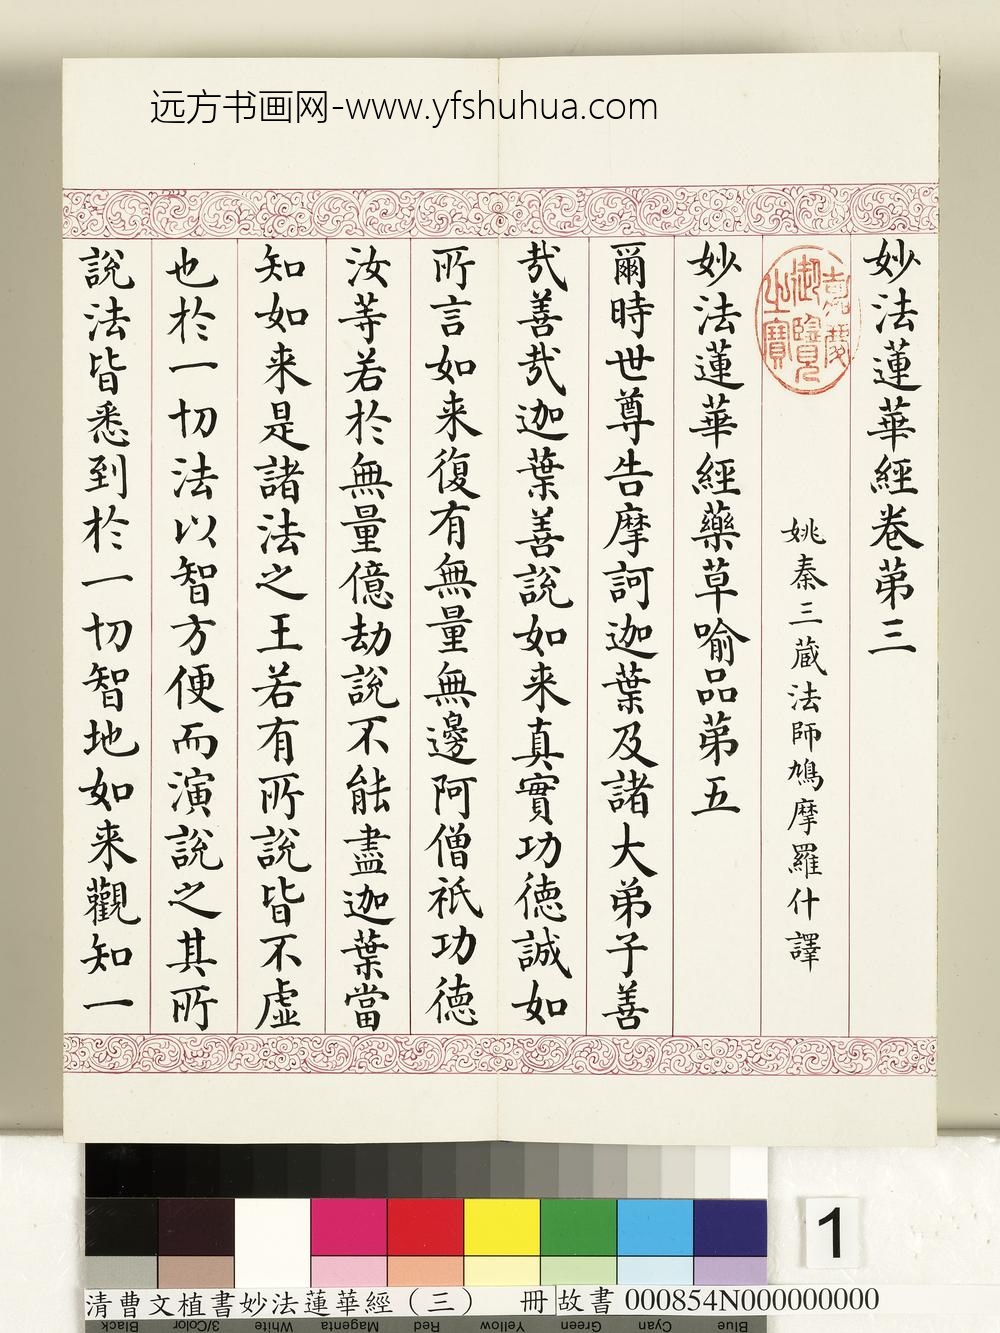 远方书画网-www.yfshuhua.com
妙法蓮華經卷苐三
嘉慶御覽之寶
姚秦三蔵法師鳩摩羅什譯
妙法蓮華經藥草喻品苐五
爾時世尊告摩訶迦葉及諸大弟子善
㢤善㢤迦葉善說如来真實功徳誠如
所言如来復有無量無邊阿僧祇功徳
汝等若於無量億劫說不能盡迦葉當
知如来是諸法之王若有所說皆不虛
也於一切法以智方便而演說之其所
說法皆悉到於一切智地如来觀知一
1
清曹文植書妙法蓮華經（三） 冊 故書 000854N000000000
Black 3/Color White Magenta Red Yellow Green Cyan Blue